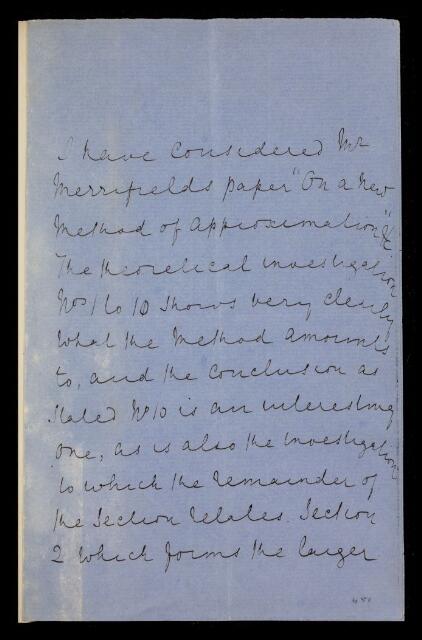 I have considered Mr
Merrifields paper "On a New
Method of Approximation" &c
The theoretical investigation
Nos 1 to 10 shows very clearly
what the Method amounts
to, and the conclusion as
stated No 10 is an interesting
one, as is also the investigation
to which the remainder of
the Section relates. Section
2 which forms the larger